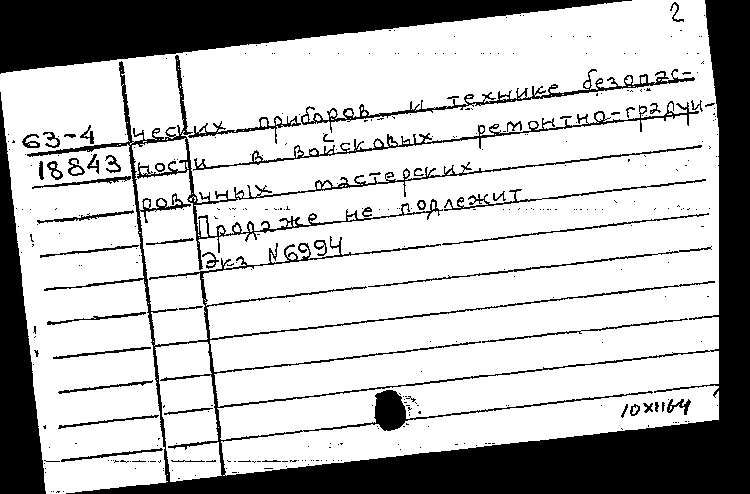 2
ческих приборов и технике безопас-
63-4 ности в войсковых ремонтно-градуи-
18843 ровочных мастерских.
Продаже не подлежит
Экз. N6994.
10XII64